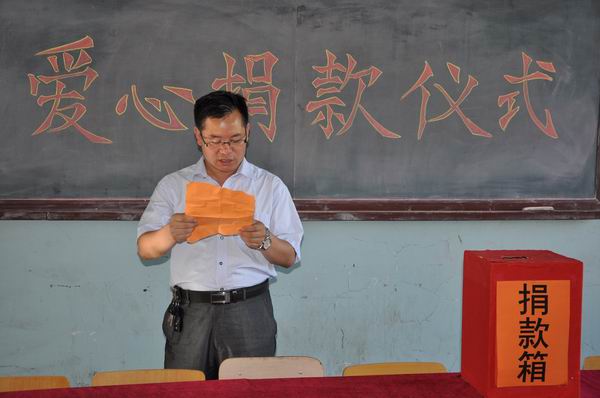 爱心捐款仪式
捐款箱